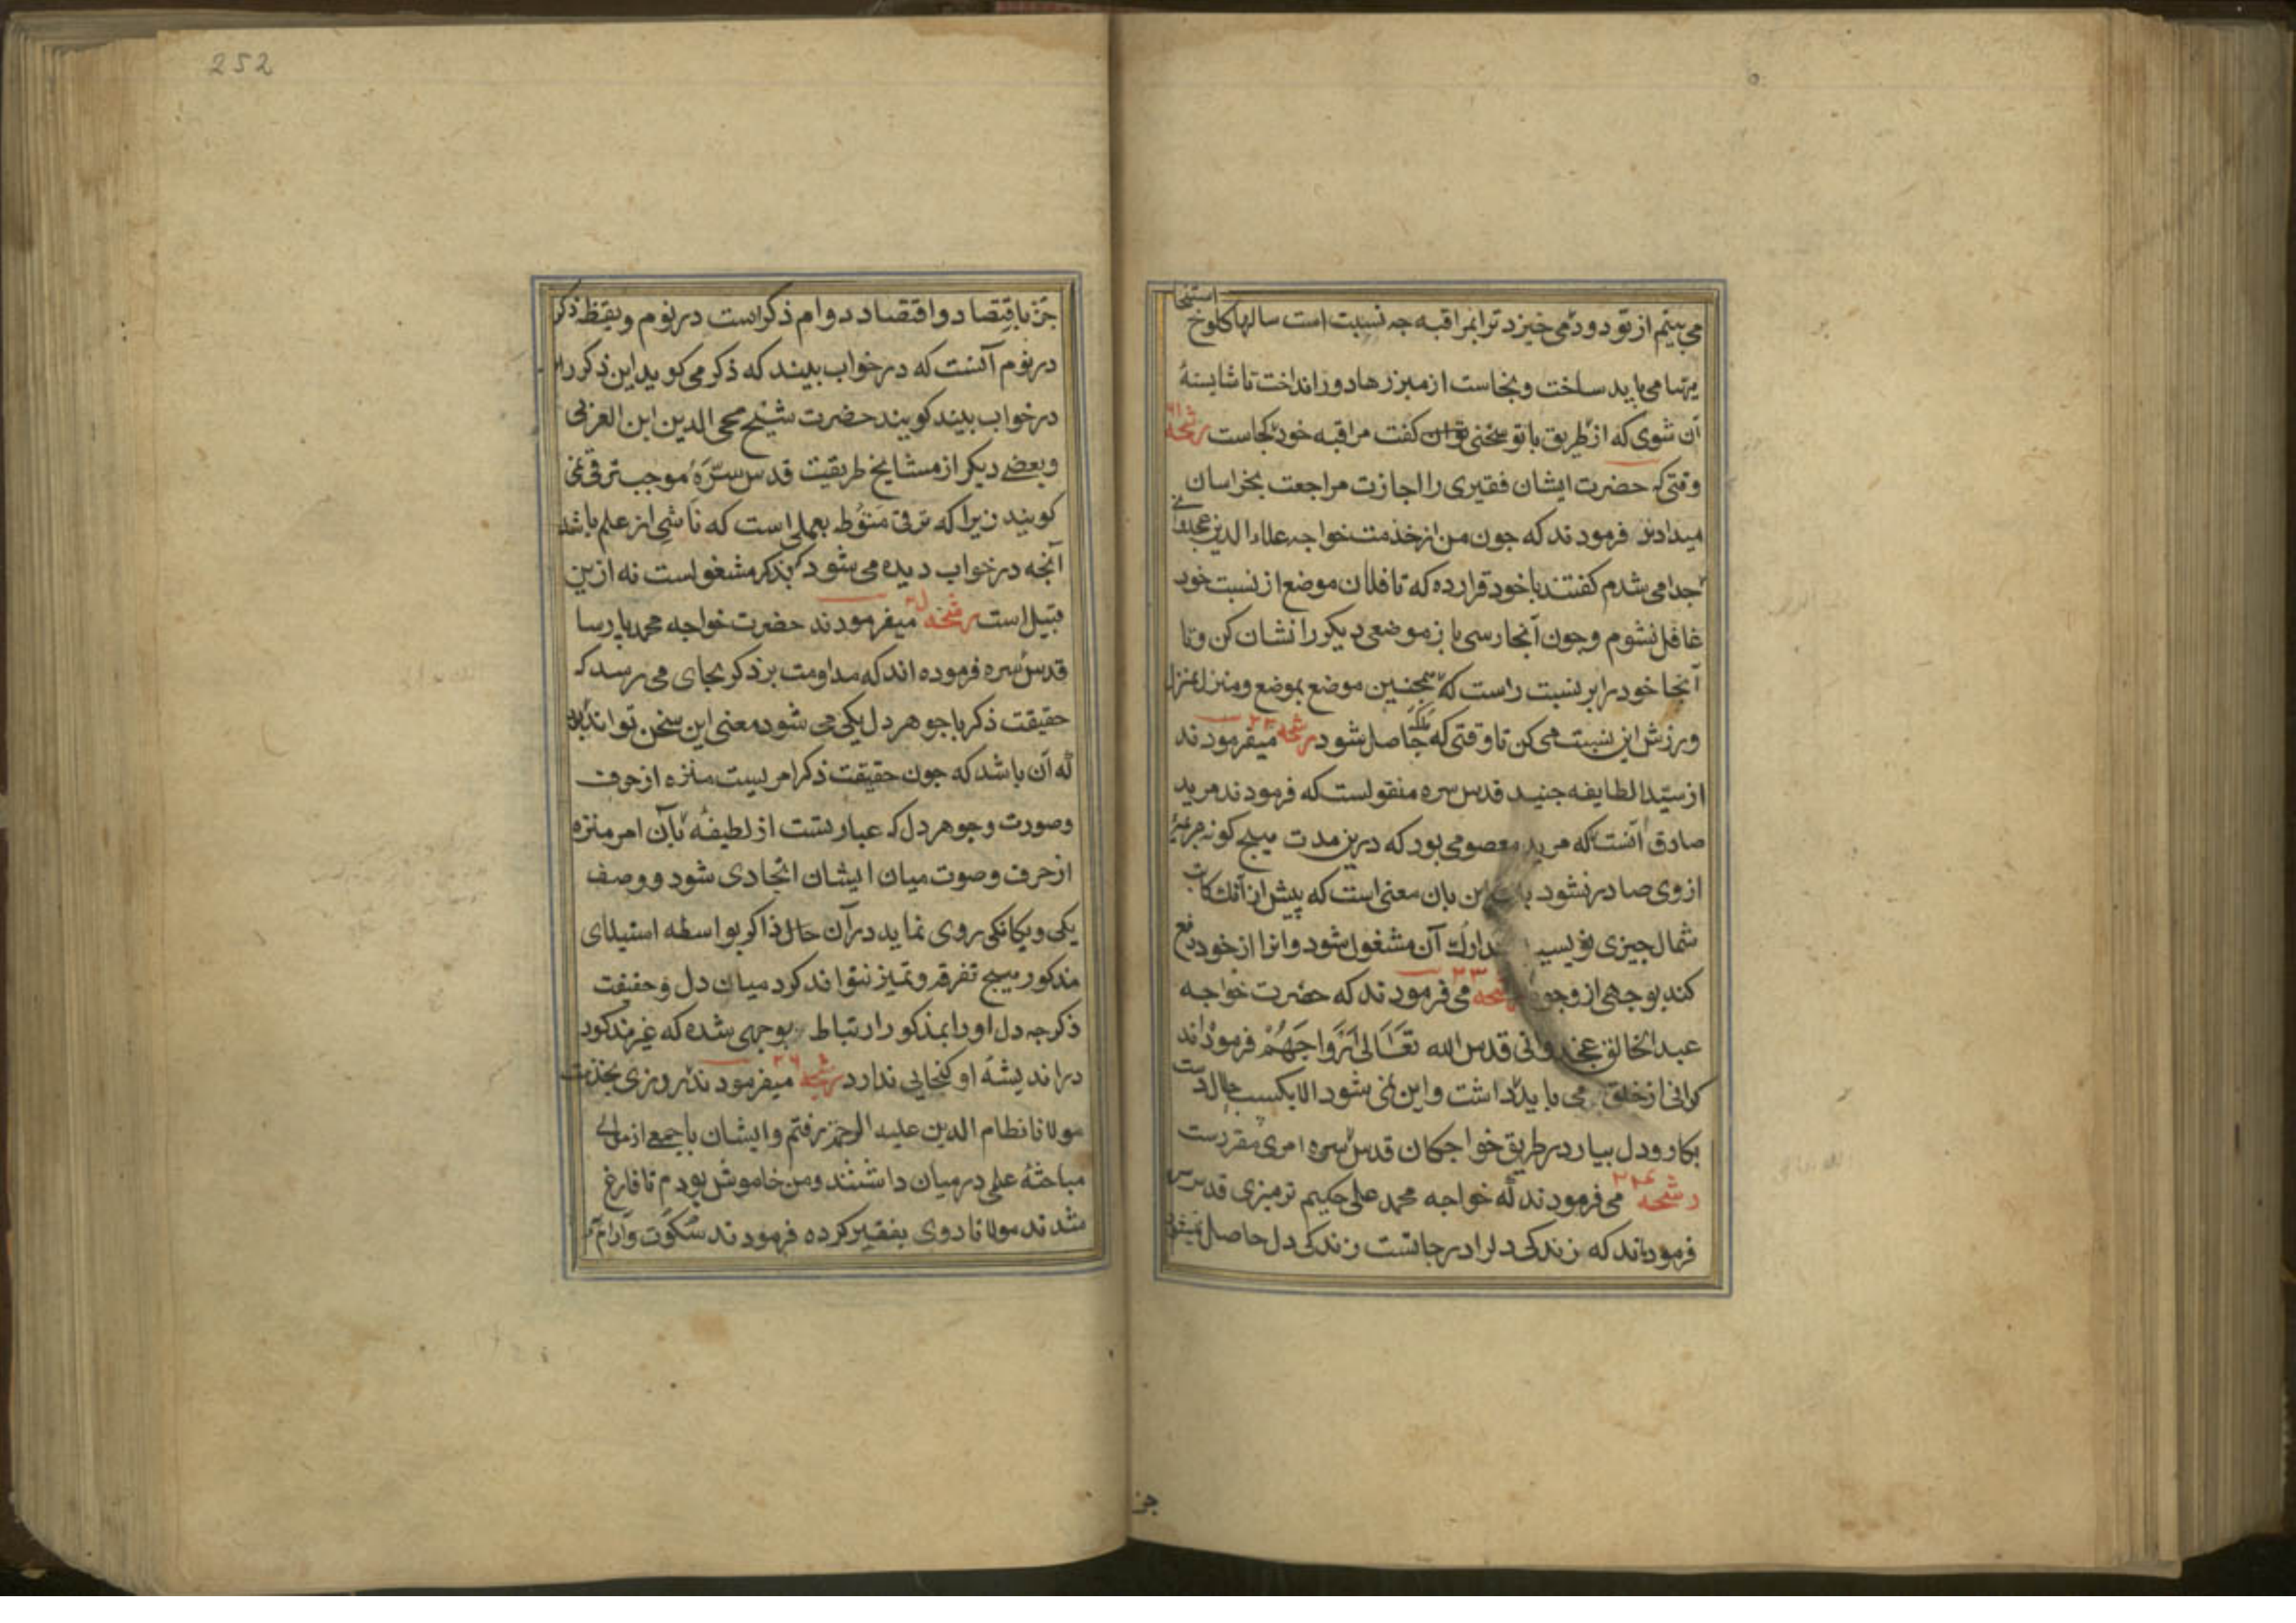 استنجا
می بینم از تو دود می خیزد ترا بمراقبه جه نسبت است سالها کلوخ
مهیا می باید ساخت و نجاست از مبرزها دور انداخت تا شایستهٔ
آن شوی که از طریق با تو سخنی توان کفت مراقبه خود کجاست رشحه ۶۱
وقتی که حضرت ایشان فقیری را اجازت مراجعت بخراسان
میدادند فرمودند که جون من از خذمت خواجه علاء الدین غجدوانی
جدا می شدم کفتند با خود قرار ده که تا فلان موضع از نسبت خود
غافل نشوم و جون آنجا رسی باز موضعی دیکر را نشان کن و تا
آنجا خود را بر نسبت راست که همجنین موضع بموضع و منزل بمنزل
ورزش این نسبت می کن تا وقتی که ملکه حاصل شود رشحه میفرمودند
از سیّد الطایفه جنید قدس سره منقولست که فرمودند مرید
صادق آنست که مرید معصومی بود که درین مدت هیج کونه
از وی صادر نشود بان معنی است که پیش از آنک کاتب
شمال جیزی نویسد تدارک آن مشغول شود و انرا از خود دفع
کند بوجهی از وجوه رشحه ۲۳ می فرمودند که حضرت خواجه
عبد الخالق غجدوانی قدس الله تعالی ارواحهم فرموده اند
کرانی از خلق می باید داشت و این نمی شود الا بکسب حلال دست
بکار و دل بیار در طریق خواجکان قدس سره امری مقررست
رشحه ۲۴ می فرمودند که خواجه محمد علی حکیم ترمیزی قدس سره
فرموده اند که زندکی دلرا درجاتست زندکی دل حاصل نمیشود
جز
252
جز باقتصاد و اقتصاد دوام ذکر است در نوم و یقظه ذکر
در نوم آنست که در خواب بیند که ذکر می کوید این ذکر را
در خواب بیند کویند حضرت شیخ محی الدین ابن العربی
و بعضے دیکر از مشایخ طریقت قدس سرّه موجب ترقی نمی
کویند زیرا که ترقی منوط بعملی است که ناشی از علم باشد
آنجه در خواب دیده می شود که بذکر مشغولست نه ازین
قبیل است رشحه میفرمودند حضرت خواجه محمد پارسا
قدس سره فرموده اند که مداومت بر ذکر بجای می رسد که
حقیقت ذکر با جوهر دل یکی می شود معنی این سخن تواند بود
که آن باشد که جون حقیقت ذکر امریست منزه از حرف
و صورت و جوهر دل که عبارتست از لطیفهٔ بآن امر منزه
از حرف و صوت میان ایشان اتحادی شود و وصف
یکی و یکانکی روی نماید در آن حال ذاکر بواسطه استیلای
مذکور هیج تفرقه و تمیز نتواند کرد میان دل و حقیقت
ذکر جه دل او را بمذکور ارتباط بوجهی شده که غیر مذکور
در اندیشهٔ او کنجایی ندارد رشحه ۲۶ میفرمودند روزی بخذمت
مولانا نظام الدین علیه الرحمه رفتم و ایشان با جمعے از موالی
مباحثهٔ علمی در میان داشتند و من خاموش بودم تا فارغ
شدند مولانا روی بفقیر کرده فرمودند سکوت و آرام